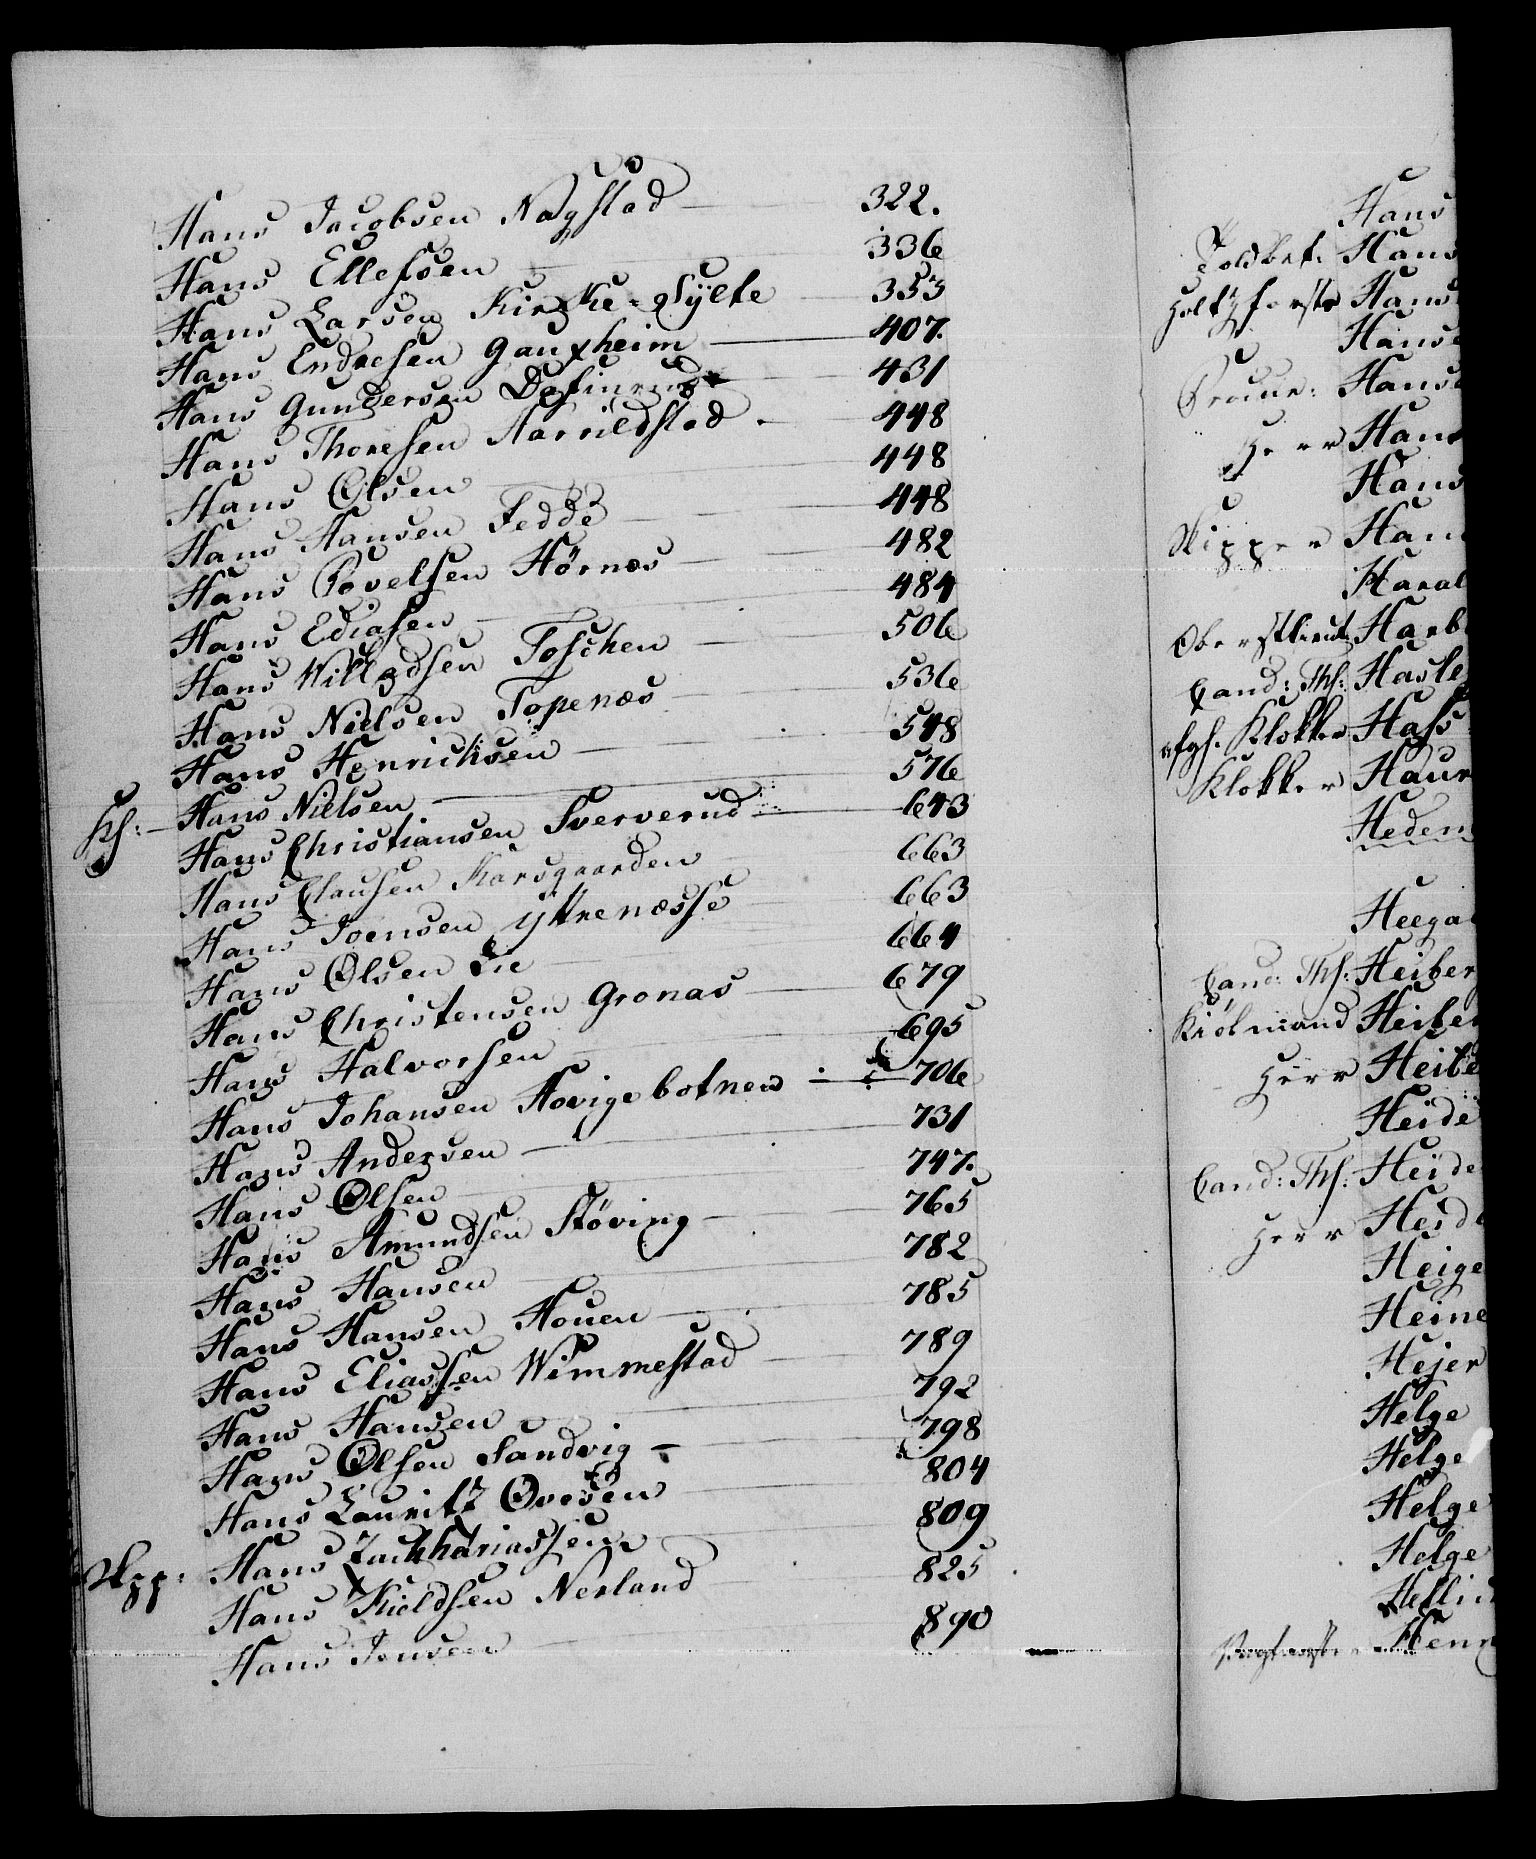 Hans Jacobsen Nagstad — 322.
Hans Ellefsen — 336
Hans Larsen Kirke-Sylte — 353
Hans Endresen Gauxheim — 407.
Hans Gundersen — 431
Hans Thoresen Harrildstad — 448
Hans Olsen — 448
Hans Hansen Fedde — 448
Hans Povelsen Hörnæs — 482
Hans Ediasen — 484
Hans Willadsen Foschen — 506
Hans Nielsen Topenæs — 536
Hans Henrichsen — 548
Kf: — Hans Nielsen — 576
Hans Christiansen Sververud — 643
Hans Clausen Karsgaarden — 663
Hans Joensen Yttrenæsse — 663
Hans Olsen Lie — 664
Hans Christensen Gronas — 679
Hans Halvorsen — 695
Hans Johansen Hovigebotnen — 706
Hans Andersen — 731
Hans Olsen — 747.
Hans Amundsen Stöving — 765
Hans Hansen — 782
Hans Hansen Houen — 785
Hans Eliassen Wimmestad — 789
Hans Hansen — 792
Hans Olsen Sandvig — 798
Hans Lauritz Ovesen — 804
Skpp: Hans Zachhariassen — 809
Hans Kieldsen Nerland — 825
Hans Jensen — 890
Hans
Toldbet: Hans
Holtzførster Hans
Hans
Procur: Hans
Herr Hans
Hans
Skipper Han
Haral
Oberstlieut: Harb
Cand: Th: Hasle
Klokker Hass
Klokker Haur
Hedem
Heega
Cand: Th: Heiber
Kiölmand Heiber
Herr Heibe
Heide
Cand: Th: Heide
Herr Heide
Heige
Heine
Hejer
Helge
Helge
Helge
Helge
Hellin
Henn